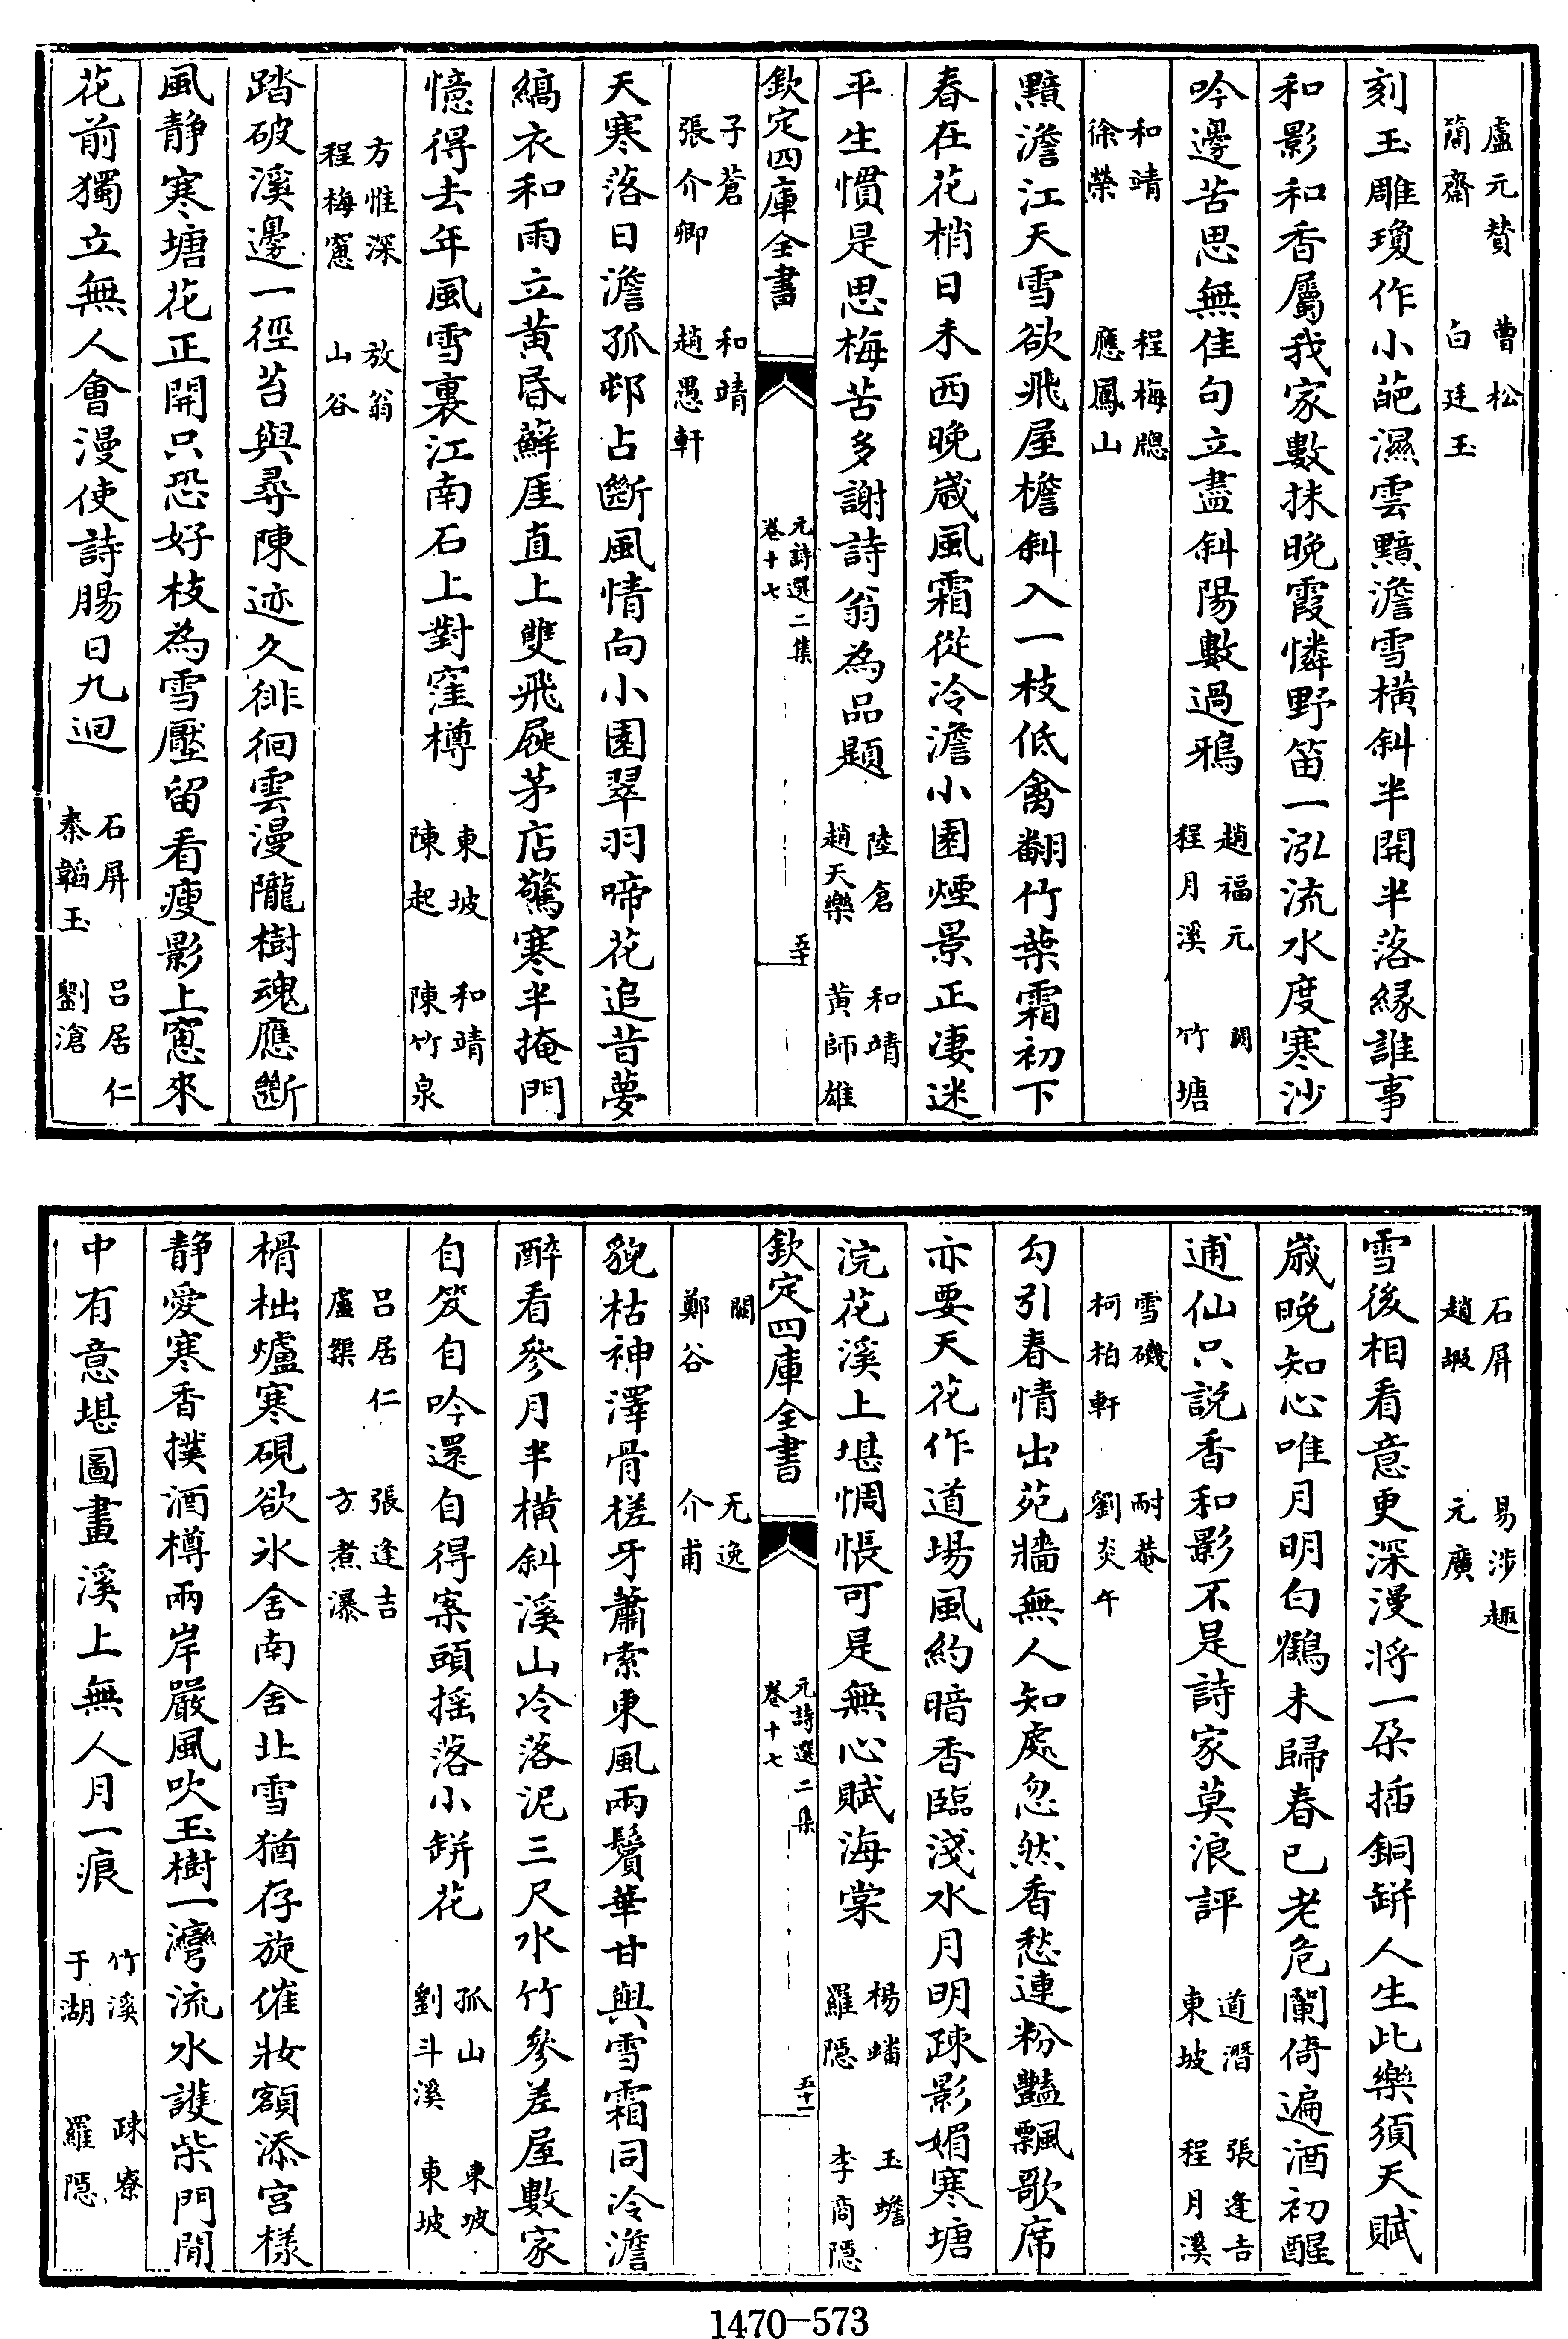 盧元贊　曹松
簡齋　白廷玉
刻玉雕瓊作小葩濕雲黯澹雪橫斜半開半落緣誰事
和影和香屬我家數抹晚霞憐野笛一泓流水度寒沙
吟邊苦思無佳句立盡斜陽數過鴉　趙福元　闕
程月溪　竹塘
和靖　程梅牕
徐榮　應鳳山
黯澹江天雪欲飛屋檐斜入一枝低禽翻竹葉霜初下
春在花梢日未西晚歲風霜從冷澹小園煙景正凄迷
平生慣是思梅苦多謝詩翁為品題　陸倉　和靖
趙天樂　黄師雄
欽定四庫全書
元詩選二集
卷十七
五十
子蒼　和靖
張介卿　趙愚軒
天寒落日澹孤邨占斷風情向小園翠羽啼花追昔夢
縞衣和雨立黄昏蘚厓直上雙飛屐茅店驚寒半掩門
憶得去年風雪裏江南石上對窪樽　東坡　和靖
陳起　陳竹泉
方惟深　放翁
程梅窻　山谷
踏破溪邊一徑苔與尋陳迹久徘徊雲漫隴樹魂應斷
風靜寒塘花正開只恐好枝為雪壓留看瘦影上窻來
花前獨立無人會漫使詩腸日九迴　石屏　吕居仁
秦韜玉　劉滄
石屏　易涉趣
趙嘏　元廣
雪後相看意更深漫將一朶插銅缾人生此樂須天賦
歲晚知心唯月明白鶴未歸春已老危闌倚遍酒初醒
逋仙只説香和影不是詩家莫浪評　道潛　張逢吉
東坡　程月溪
雪磯　耐菴
柯柏軒　劉炎午
勾引春情出苑牆無人知處忽然香愁連粉豔飄歌席
亦要天花作道場風約暗香臨淺水月明疎影媚寒塘
浣花溪上堪惆悵可是無心賦海棠　楊蟠　玉蟾
羅隱　李商隱
欽定四庫全書
元詩選二集
卷十七
五十一
闕　无逸
鄭谷　介甫
貌枯神澤骨槎牙蕭索東風兩鬢華甘與雪霜同冷澹
醉看參月半橫斜溪山冷落泥三尺水竹參差屋數家
自笈自吟還自得案頭揺落小缾花　孤山　東坡
劉斗溪　東坡
吕居仁　張逢吉
盧槃　方煮瀑
榾柮爐寒硯欲氷舍南舍北雪猶存旋催妝額添宫樣
靜愛寒香撲酒樽兩岸嚴風吹玉樹一灣流水護柴門閒
中有意堪圖畫溪上無人月一痕　竹溪　疎寮
于湖　羅隱
1470—573